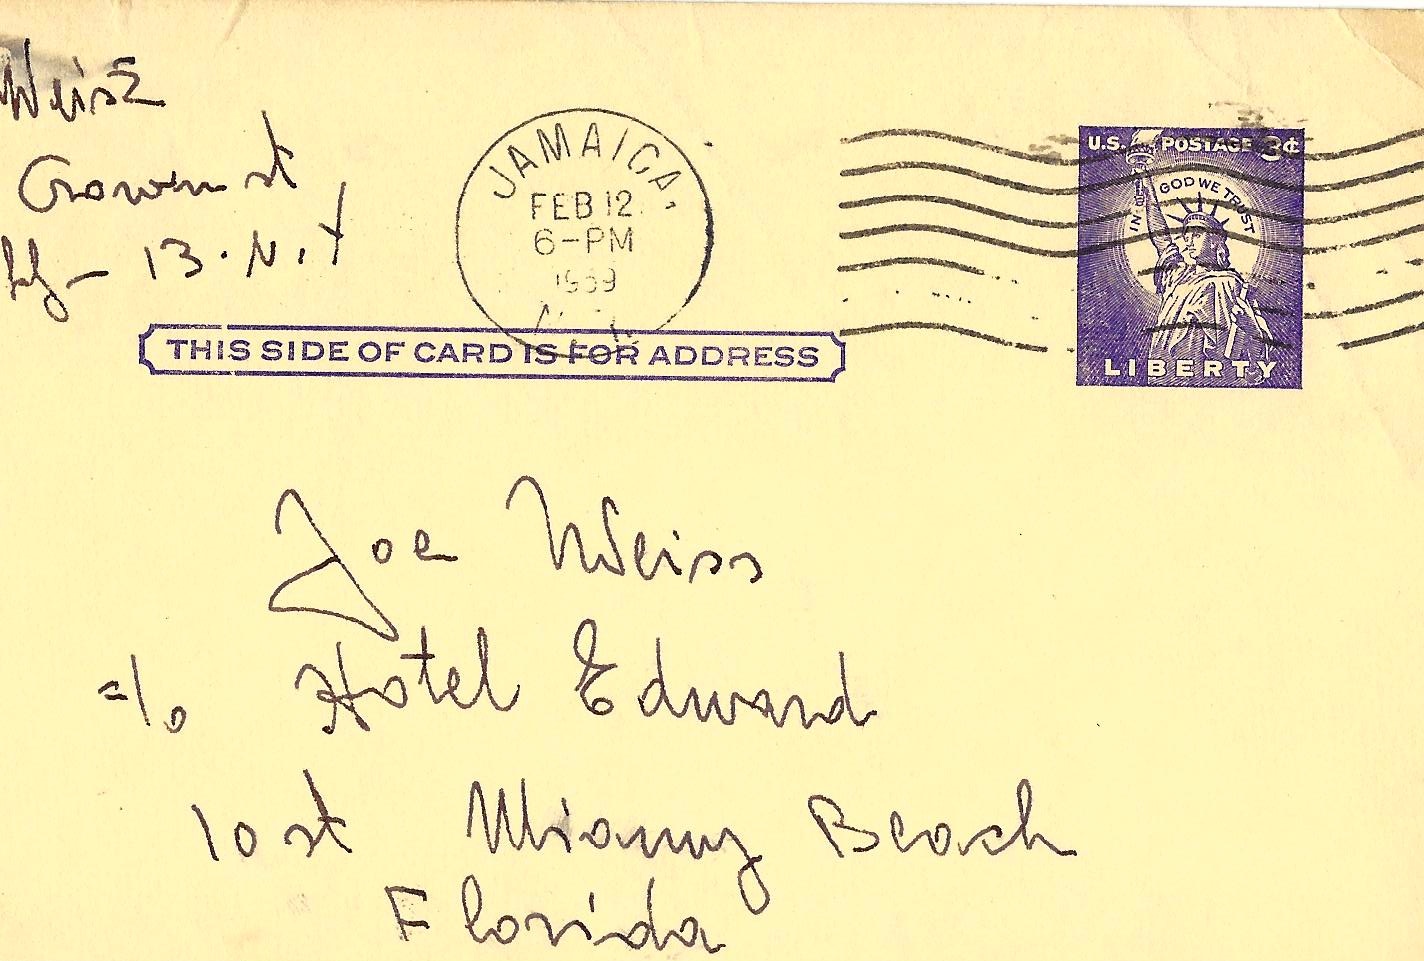 Weisz
Crown st
13. N. Y
JAMAICA,
FEB 12
6-PM
1959
U.S. POSTAGE 3¢
IN GOD WE TRUST
LIBERTY
THIS SIDE OF CARD IS FOR ADDRESS
Joe Weiss
%  Hotel Edward
10 st Miamy Beach
Florida